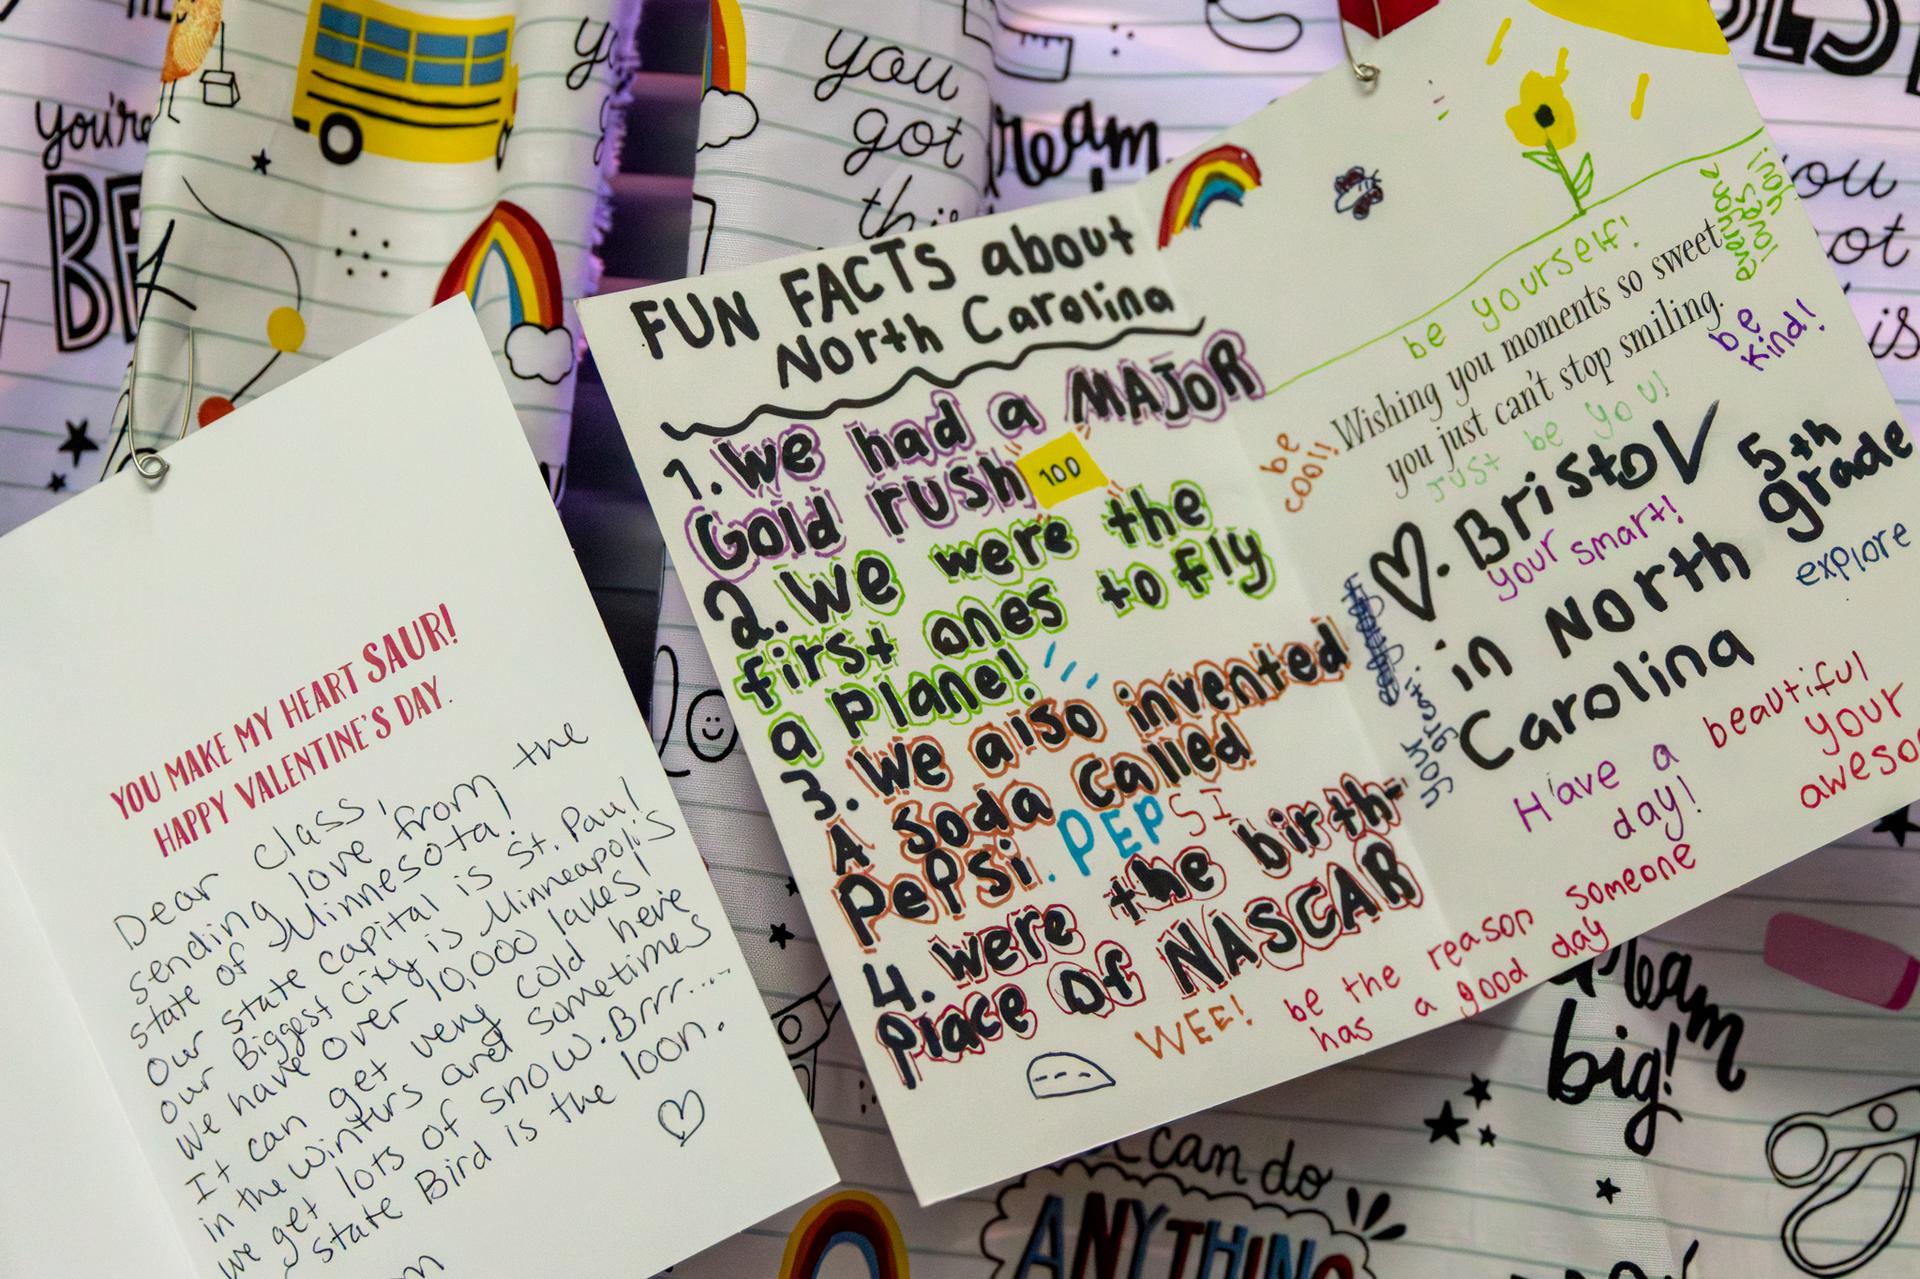 you're
BE
you
got
this
dream
YOU MAKE MY HEART SAUR!
HAPPY VALENTINE'S DAY.
Dear Class,
sending love from the
state of Minnesota!
Our state capital is St. Paul
our Biggest city is Minneapolis
We have over 10,000 lakes!
It can get very cold here
in the winturs and sometimes
we get lots of snow. Brrr....
state Bird is the loon.
FUN FACTS about
North Carolina
1. We had a MAJOR
Gold rush 100
2. We were the
first ones to fly
a Plane!
3. We also invented
A Soda called
Pepsi. PEPSI
4. were the birth-
place of NASCAR
WEE!
be yourself!
everyone
loves
you!
be
kind!
Wishing you moments so sweet
you just can't stop smiling.
just be you!
be
cool!
Bristol
5th
grade
your smart!
in North
Carolina
explore
your great!
Have a beautiful
day!
your
aweso
be the reason someone
has a good day
you
got
is
dream
big!
can do
ANYTHING